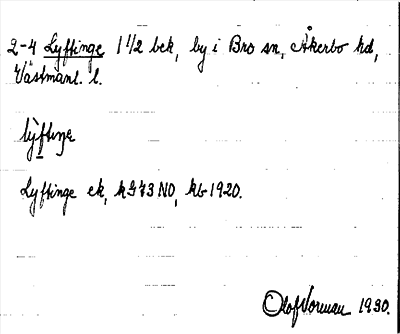 2-4 Lyftinge 1 1/2 bek, by i Bro sn, Åkerbo hd,
Västmanl. l.
lỳftiŋe
Lyftinge ek, kG43 NO, kb 1920.
Olof Norman 1930.